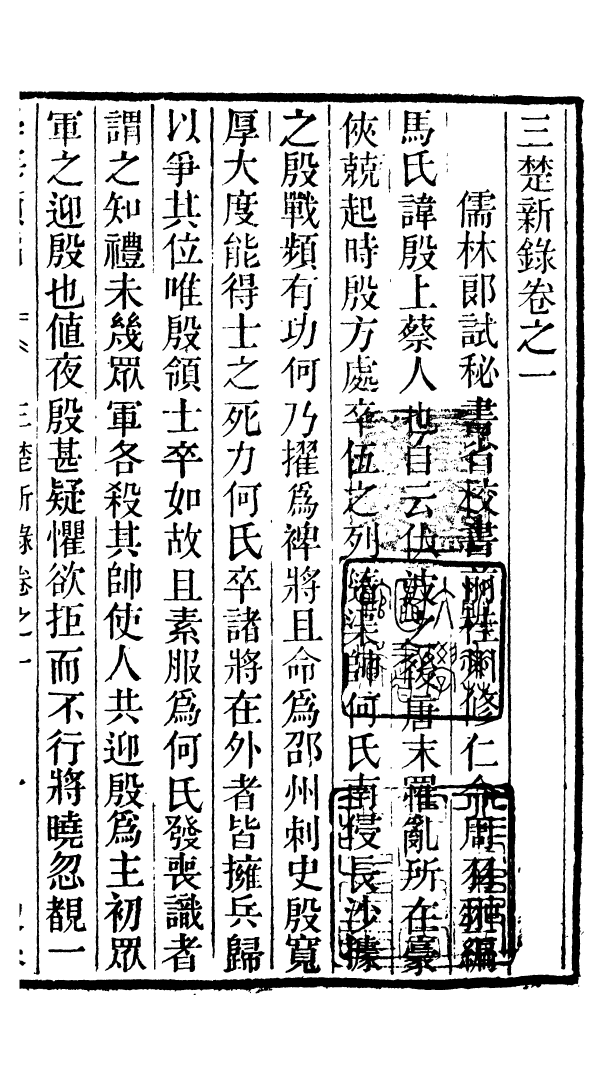 三楚新錄卷之一
儒林郎試秘書省校書前桂州修仁令周羽翀編
馬氏諱殷上蔡人也自云伏波之後唐末罹亂所在豪
俠兢起時殷方處卒伍之列隨渠帥何氏南侵長沙據
之殷戰頻有功何乃擢為裨將且命為邵州刺史殷寬
厚大度能得士之死力何氏卒諸將在外者皆擁兵歸
以爭其位唯殷領士卒如故且素服為何氏發喪識者
謂之知禮未幾眾軍各殺其帥使人共迎殷為主初眾
軍之迎殷也值夜殷甚疑懼欲拒而不行將曉忽覩一
三楚新錄卷之一